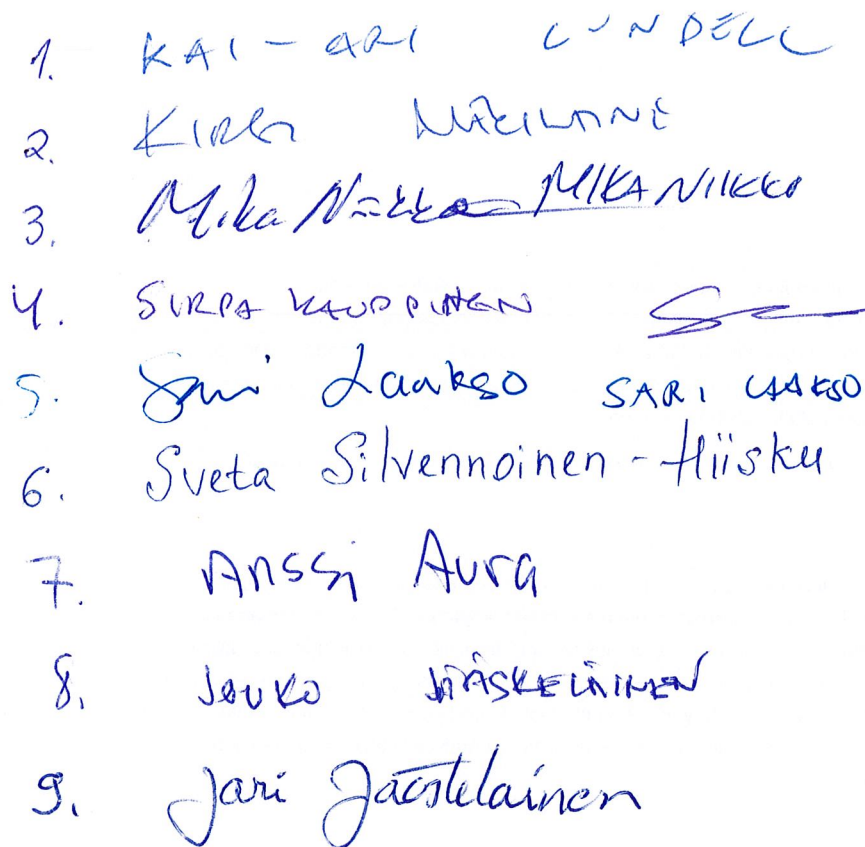 1. KAI-ARI LUNDELL
2. KIRSI
3. Mika Niikko MIKA NIIKKO
4. SIRPA KAUPPINEN
5. Sari Laakso SARI LAAKSO
6. Sveta Silvennoinen-Hiisku
7. Anssi Aura
8. JOUKO JÄÄSKELÄINEN
9. Jari